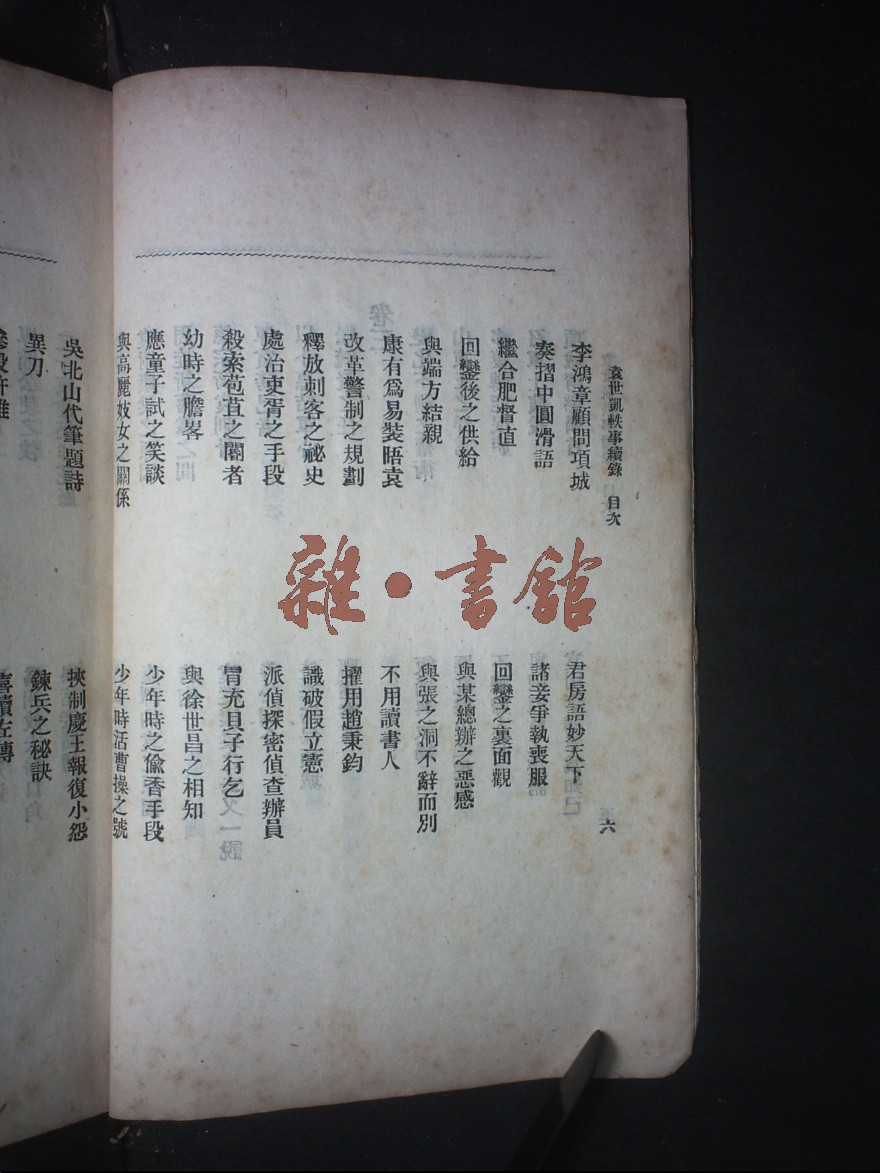 袁世凱軼事續錄　目次　六
李鴻章顧問項城　君房語妙天下
奏摺中圓滑語　諸妾爭執喪服
繼合肥督直　回鑾之裏面觀
回鑾後之供給　與某總辦之惡感
與端方結親　與張之洞不辭而別
康有爲易裝晤袁　不用讀書人
改革警制之規劃　擢用趙秉鈞
釋放刺客之祕史　識破假立憲
處治吏胥之手段　派偵探密偵查辦員
殺索苞苴之閽者　冒充貝子行乞
幼時之膽畧　與徐世昌之相知
應童子試之笑談　少年時之偸香手段
與高麗妓女之關係　少年時活曹操之號
吳北山代筆題詩　挾制慶王報復小怨
異刀　鍊兵之秘訣
喜讀左傳
雜·書館